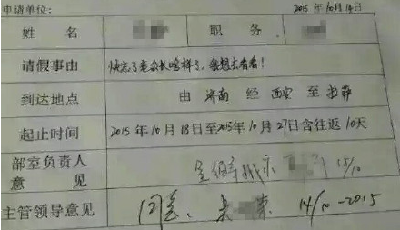 申请单位： 2015年10月14日
姓 名 职 务
请假事由 快忘了老公长啥样了，我想去看看！
到达地点 由 济南 经 西安 至
起止时间 2015年10月18日至2015年10月27日含往返10天
部室负责人
意 见 15/10
主管领导意见 同意、 14/10-2015